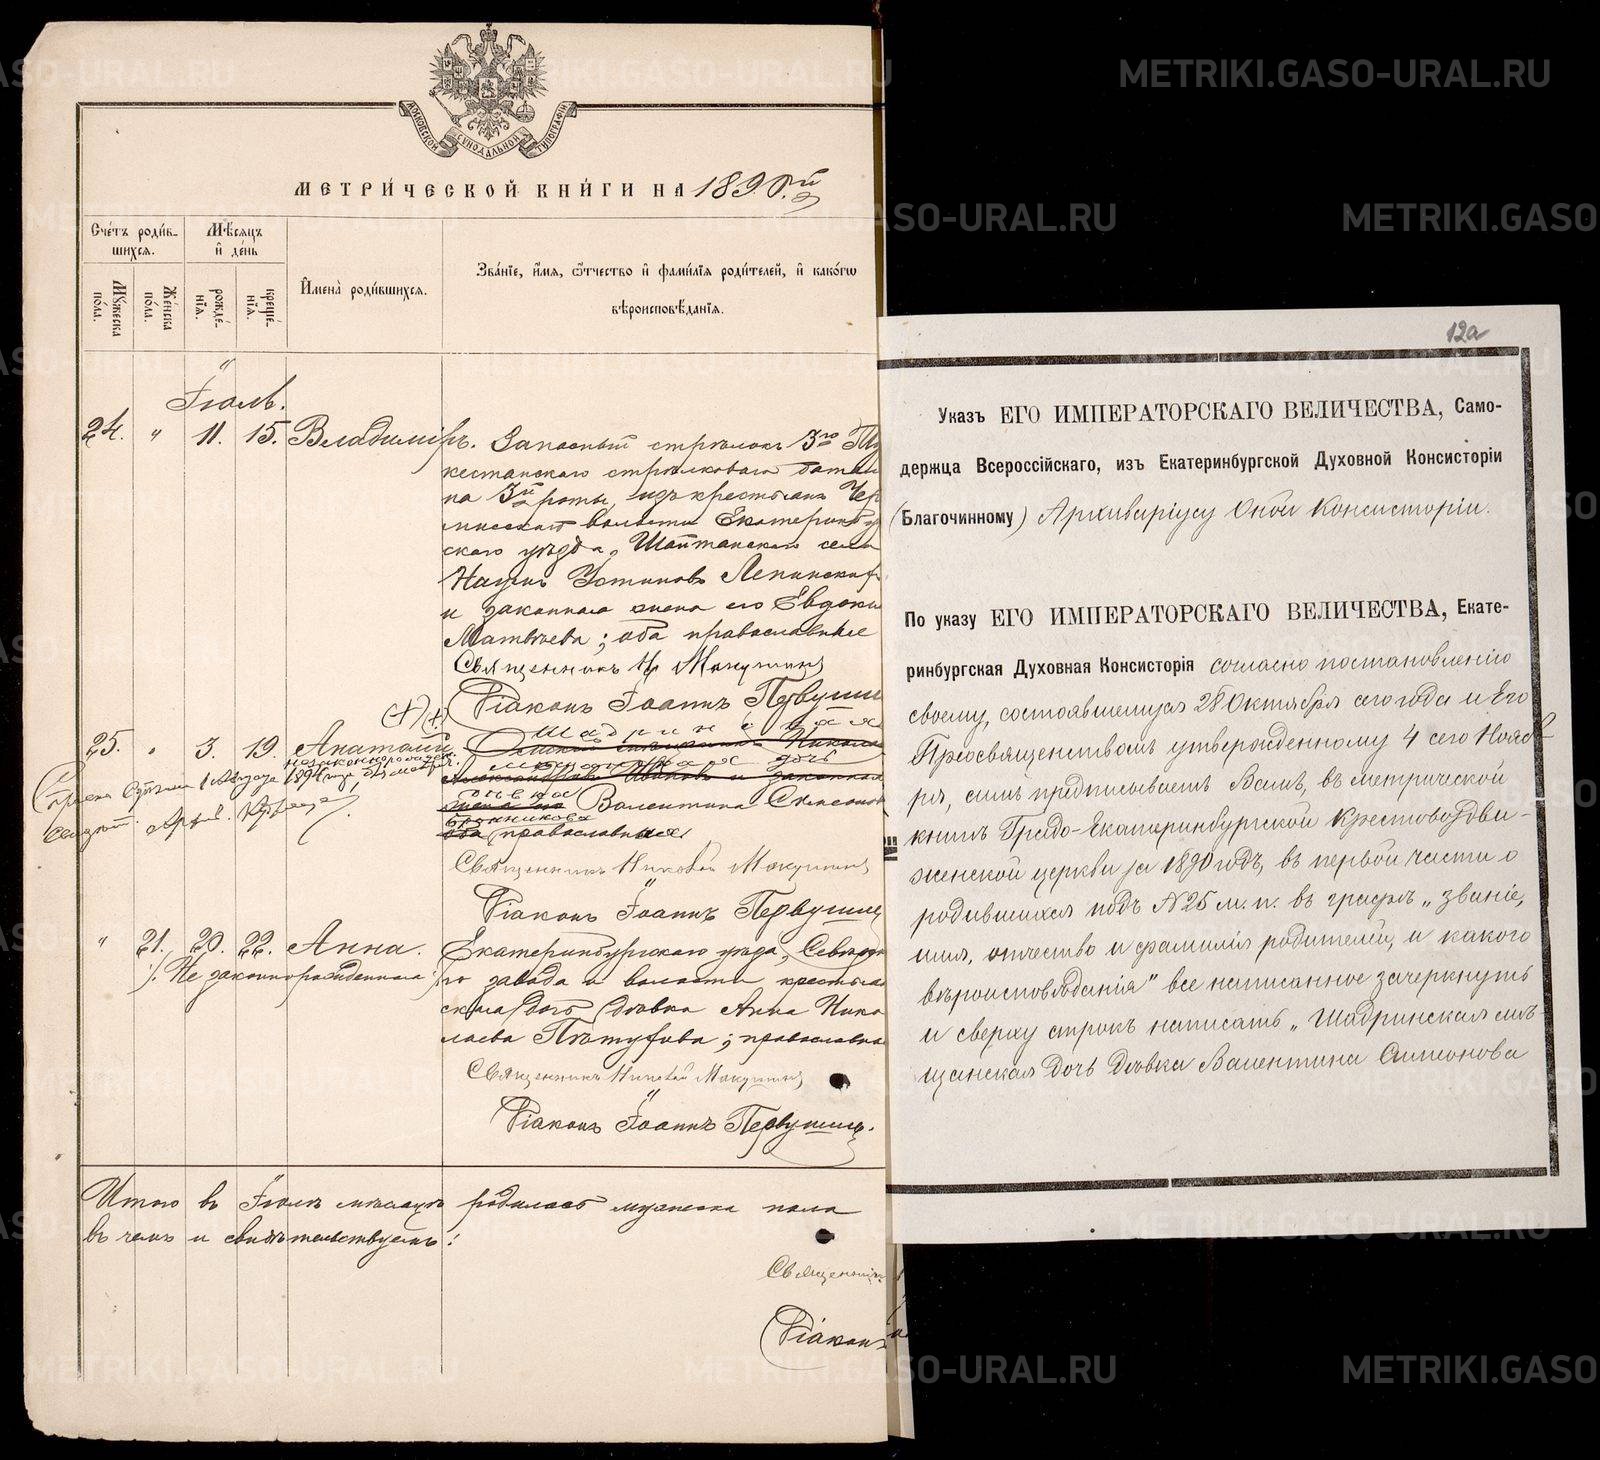 МОСКОВСКОЙ СѴНОДАЛЬНОЙ ТИПОГРАФІИ
МЕТРИ́ЧЕСКОЙ КНИ́ГИ НА 1890.й
Сче́тъ роди́в-
шихся.
Мѣ́сяцъ
и҆ де́нь
Мꙋ́жеска
по́ла.
Же́нска
по́ла.
рожде́-
нїѧ.
креще́-
нїѧ.
И҆мена̀ роди́вшихсѧ.
Зва́нїе, и҆́мѧ, ѻ҆́тчество и҆ фами́лїѧ роди́телей, и҆ како́гѡ
вѣроисповѣ́данїѧ.
Іюль.
24. " 11. 15. Владиміръ. Запасный стрѣлокъ 3го Ту
кестанскаго стрѣлковаго батал
на 3й роты, изъ крестьянъ Чер
мисской волости Екатеринбур
скаго уѣзда, Шайтанскаго села
Наумъ Устиновъ Лепинских
и законная жена его Евдокі
Матвѣева; оба православные
Священникъ Н Макушинъ
Діаконъ Іоаннъ Первуши
(+)(+)
Шадринская
25. " 3. 19. Анатолій
незаконнорожден
мѣщанская дочь
дѣвка
Валентина Симеонов
оба православная
Священникъ Николай Макушинъ
Діаконъ Іоаннъ Первушинъ
" 21. 20. 22. Анна. Екатеринбургскаго уѣзда, Сѣверск
/: Не законнорожденная :/ го завода и волости крестьян
ская дочь дѣвка Анна Нико
лаева Пѣтухова; православна
Священникъ Николай Макушинъ
Діаконъ Іоаннъ Первушинъ.
Итого въ Іюлѣ мѣсяцѣ родилось мужеска пола
въ чемъ и свидѣтельствуемъ:
Священникъ
Діаконъ
12а
Указъ ЕГО ИМПЕРАТОРСКАГО ВЕЛИЧЕСТВА, Само-
держца Всероссійскаго, изъ Екатеринбургской Духовной Консисторіи
(Благочинному) Архиваріусу Оной Консисторіи.
По указу ЕГО ИМПЕРАТОРСКАГО ВЕЛИЧЕСТВА, Екате-
ринбургская Духовная Консисторія согласно постановленію
своему, состоявшемуся 28 Октября сего года и Его
Преосвященствомъ утвержденному 4 сего Нояб
ря, симъ предписываетъ Вамъ, въ метрической
книгѣ Градо-Екатеринбургской Крестовоздви-
женской церкви за 1890 годъ, въ первой части о
родившихся подъ № 25 м. п. въ графѣ „званіе,
имя, отчество и фамилія родителей, и какого
вѣроисповѣданія" все написанное зачеркнуть
и сверху строкъ написать „Шадринская мѣ-
щанская дочь дѣвка Валентина Симеонова
METRIKI.GASO-URAL.RU